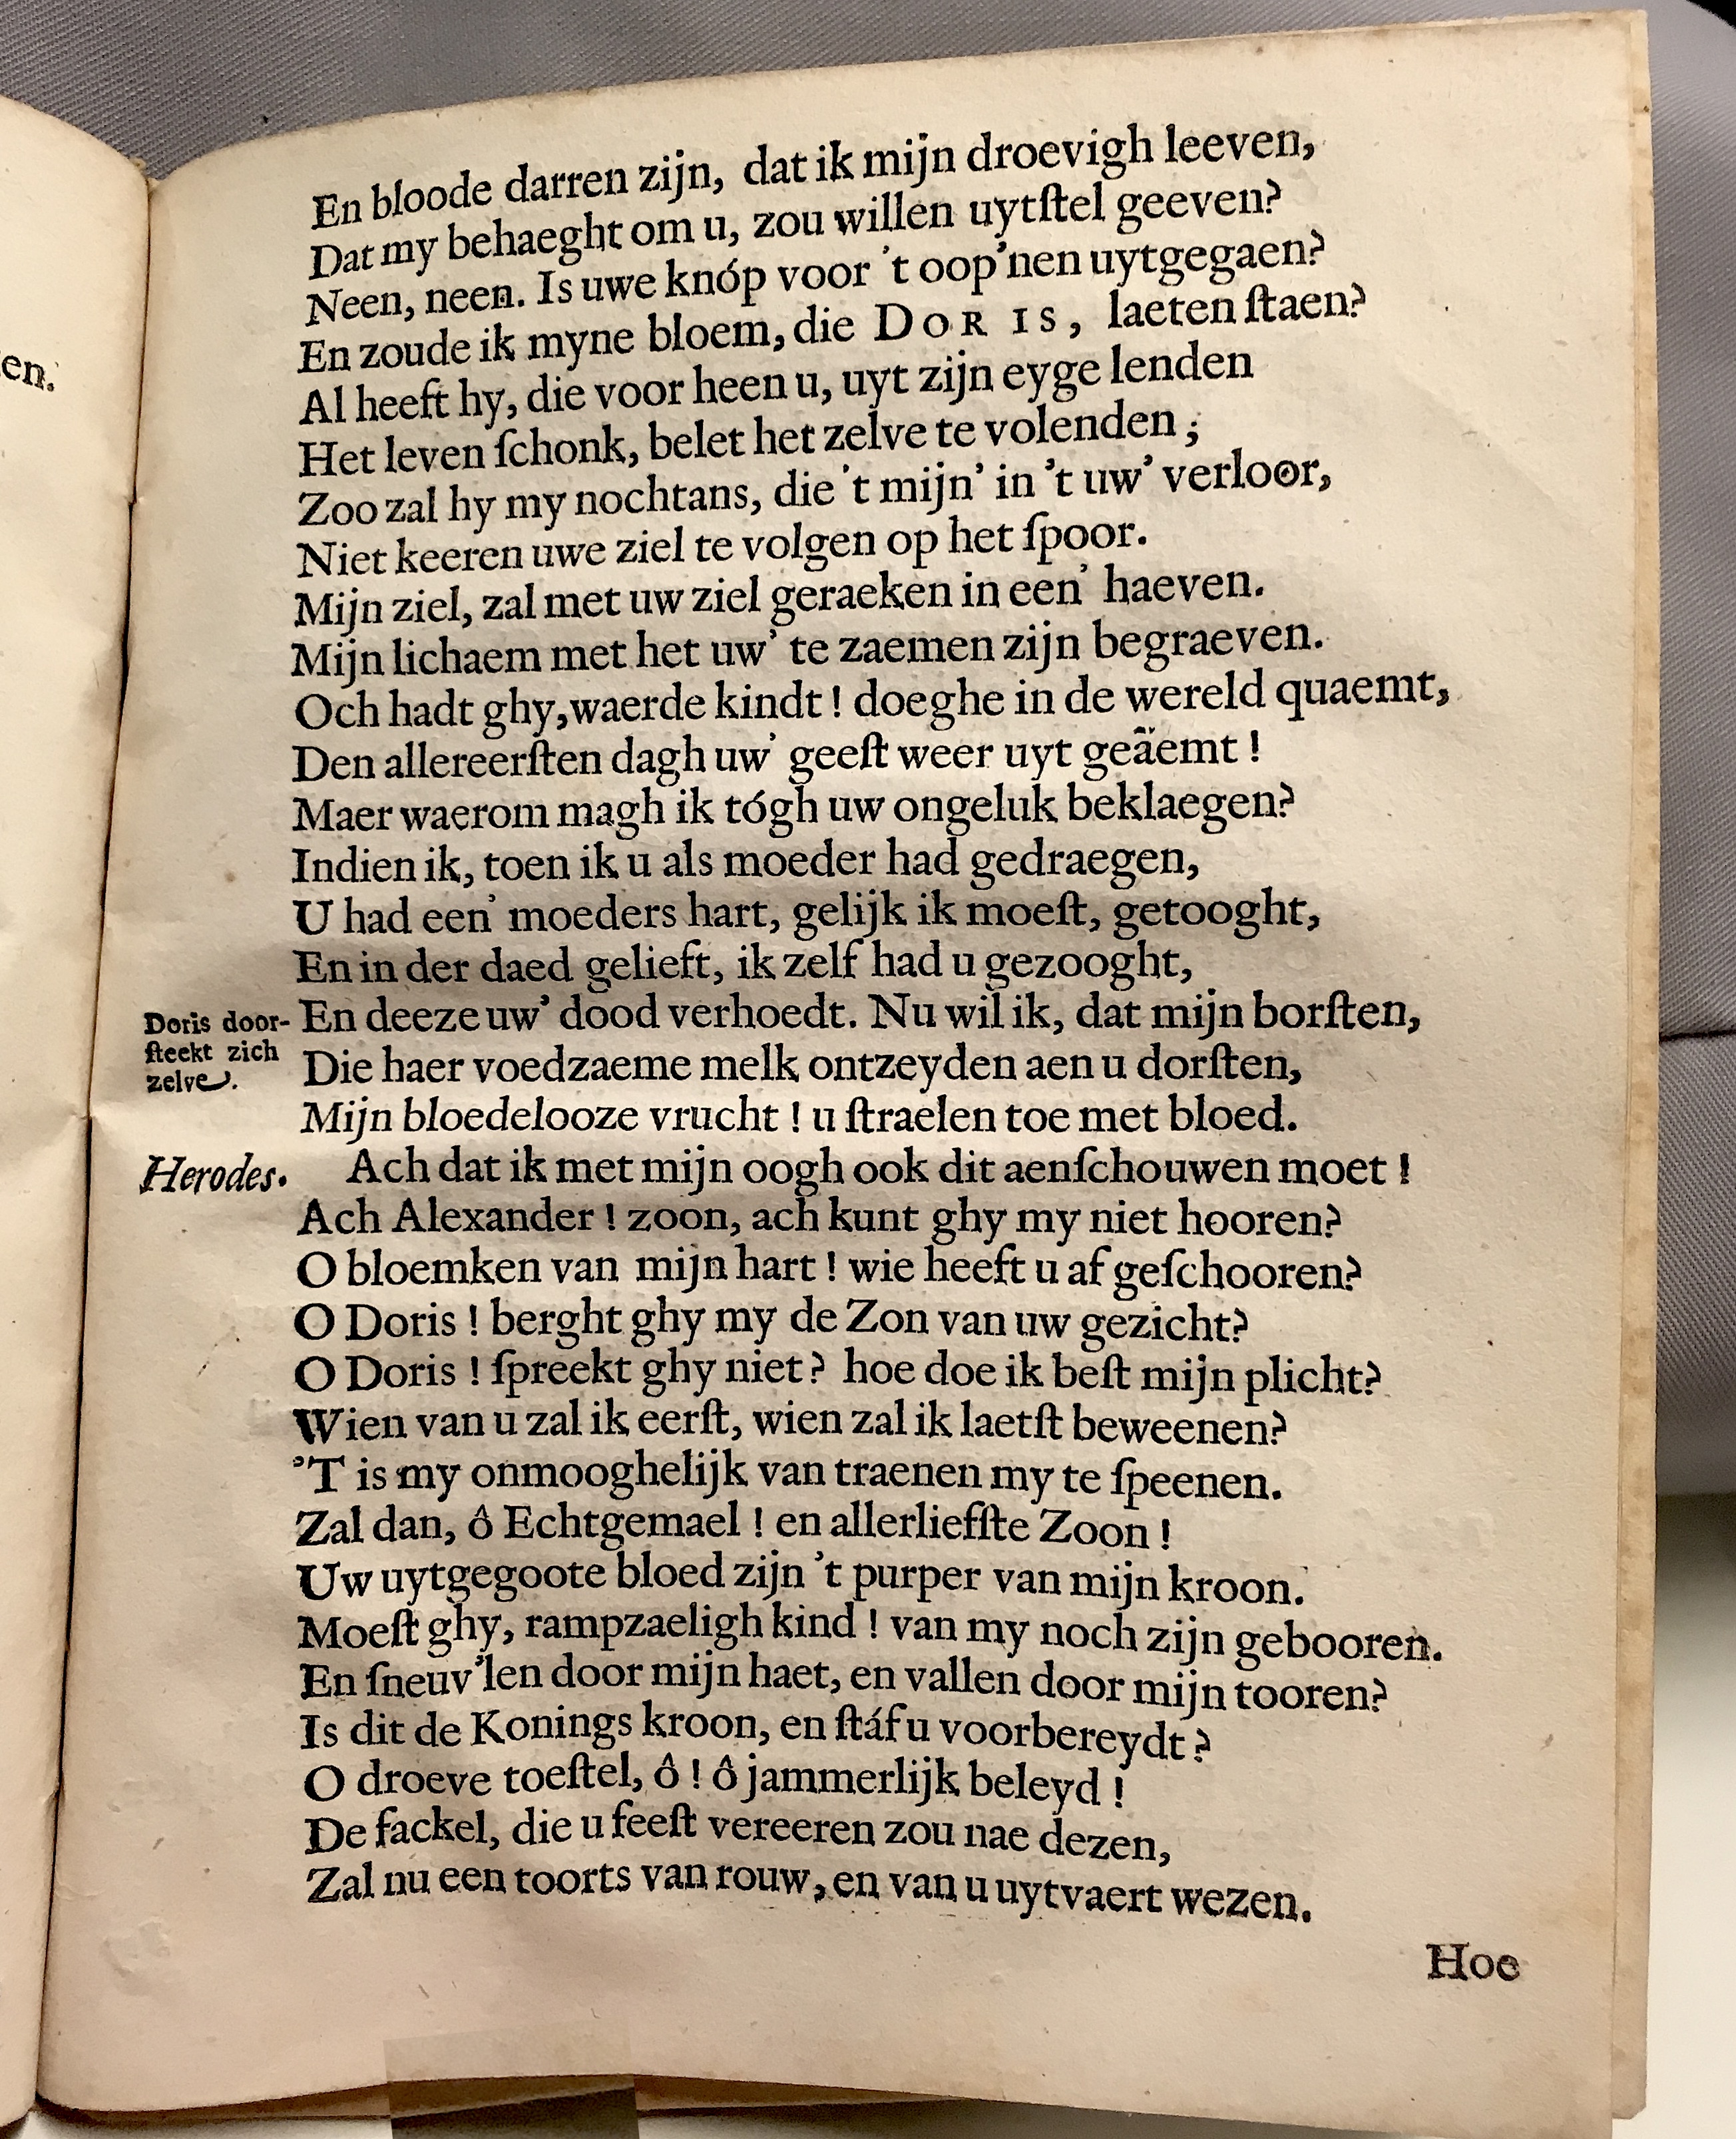 en.
En bloode darren zijn, dat ik mijn droevigh leeven,
Dat my behaeght om u, zou willen uytſtel geeven?
Neen, neen. Is uwe knóp voor 't oop'nen uytgegaen?
En zoude ik myne bloem, die DORIS, laeten ſtaen?
Al heeft hy, die voor heen u, uyt zijn eyge lenden
Het leven ſchonk, belet het zelve te volenden;
Zoo zal hy my nochtans, die 't mijn' in 't uw' verloor,
Niet keeren uwe ziel te volgen op het ſpoor.
Mijn ziel, zal met uw ziel geraeken in een' haeven.
Mijn lichaem met het uw' te zaemen zijn begraeven.
Och hadt ghy, waerde kindt! doeghe in de wereld quaemt,
Den allereerſten dagh uw' geeſt weer uyt geäemt!
Maer waerom magh ik tógh uw ongeluk beklaegen?
Indien ik, toen ik u als moeder had gedraegen,
U had een' moeders hart, gelijk ik moeſt, getooght,
En in der daed gelieft, ik zelf had u gezooght,
Doris door-
ſteekt zich
zelve.
En deeze uw' dood verhoedt. Nu wil ik, dat mijn borſten,
Die haer voedzaeme melk ontzeyden aen u dorſten,
Mijn bloedelooze vrucht! u ſtraelen toe met bloed.
Herodes. Ach dat ik met mijn oogh ook dit aenſchouwen moet!
Ach Alexander! zoon, ach kunt ghy my niet hooren?
O bloemken van mijn hart! wie heeft u af geſchooren?
O Doris! berght ghy my de Zon van uw gezicht?
O Doris! ſpreekt ghy niet? hoe doe ik beſt mijn plicht?
Wien van u zal ik eerſt, wien zal ik laetſt beweenen?
'T is my onmooghelijk van traenen my te ſpeenen.
Zal dan, ô Echtgemael! en allerliefſte Zoon!
Uw uytgegoote bloed zijn 't purper van mijn kroon.
Moeſt ghy, rampzaeligh kind! van my noch zijn gebooren.
En ſneuv'len door mijn haet, en vallen door mijn tooren?
Is dit de Konings kroon, en ſtáf u voorbereydt?
O droeve toeſtel, ô! ô jammerlijk beleyd!
De fackel, die u feeſt vereeren zou nae dezen,
Zal nu een toorts van rouw, en van u uytvaert wezen.
Hoe